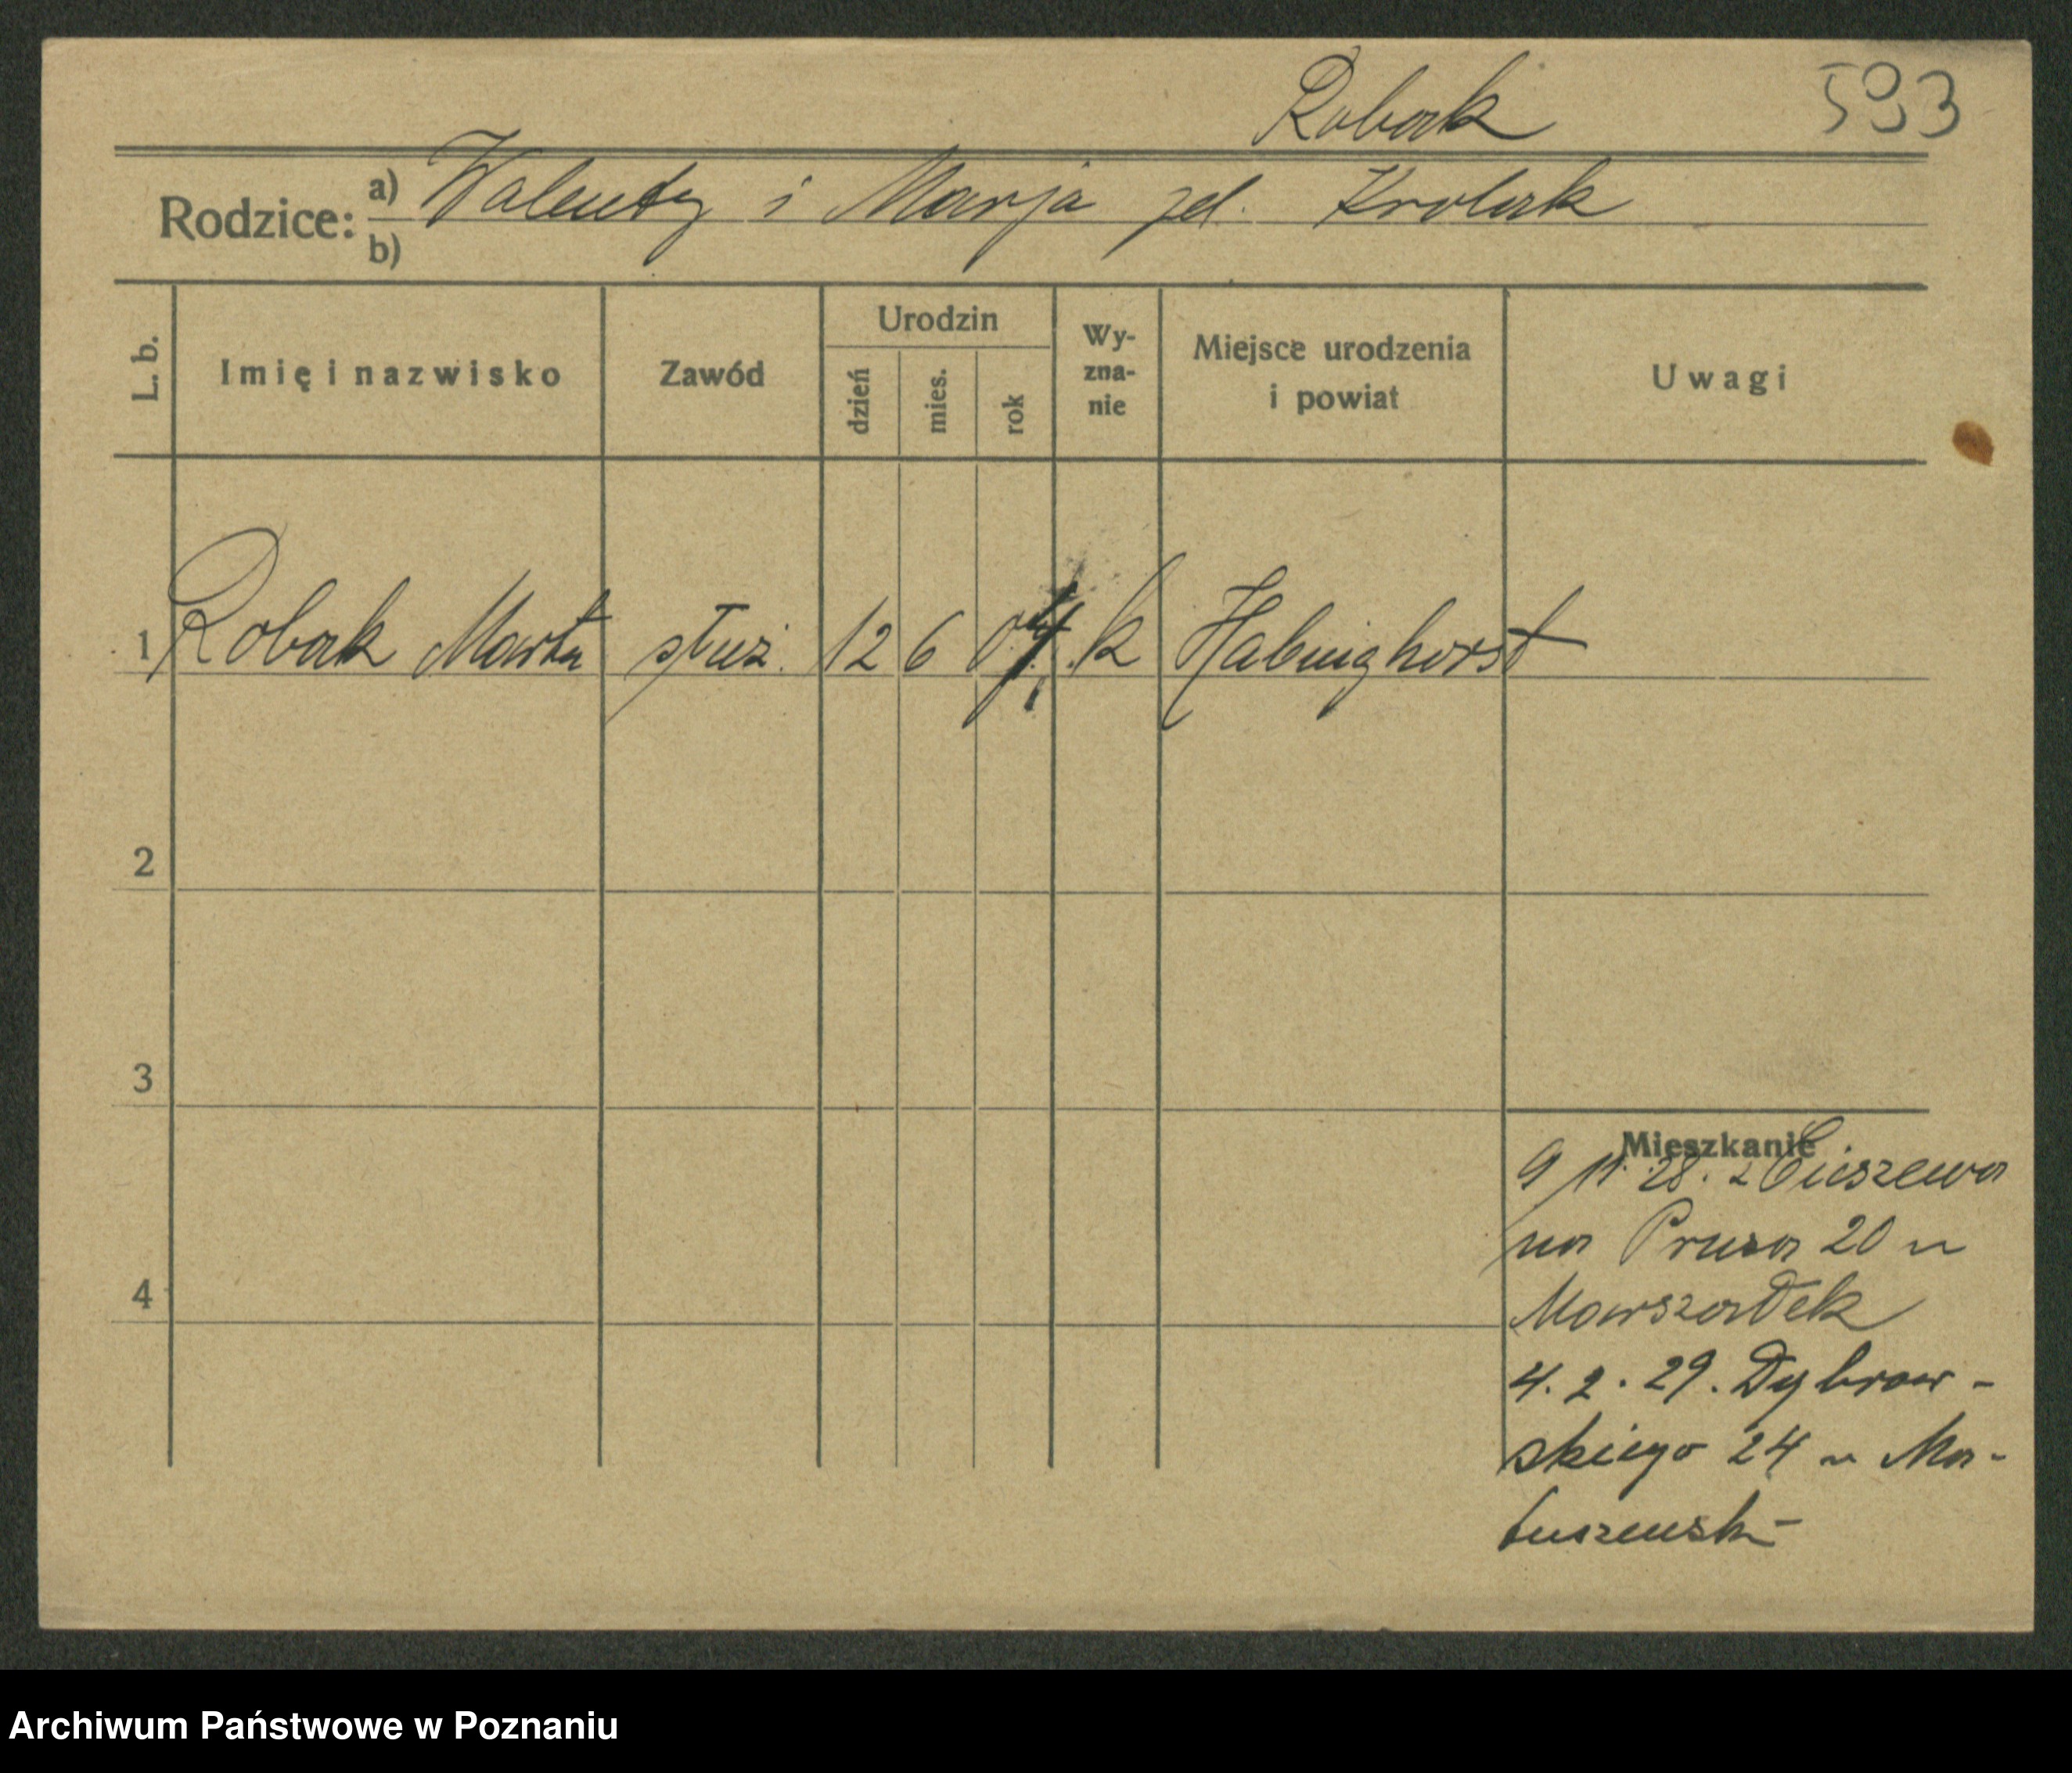 Robak 593
Rodzice: a) Walenty i Marja zd. Krolak
b)
L. b. Imię i nazwisko Zawód Urodzin dzień mies. rok Wy-zna-nie Miejsce urodzenia i powiat Uwagi
1 Robak Marta służ. 12 6 04 k Habinghorst
2
3
Mieszkanie
9 11 28. z Cieszewa
na Prusa 20 u
4
Marszałek
4. 2. 29. Dąbrow-
skiego 24 u Ma-
tuszewski
Archiwum Państwowe w Poznaniu